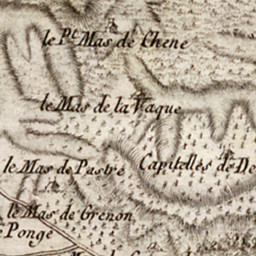 le Pt. Mas de Chene
le Mas de la Vaque
le Mas de Pastre
Capitelles de
le Mas de Grenon
Ponge